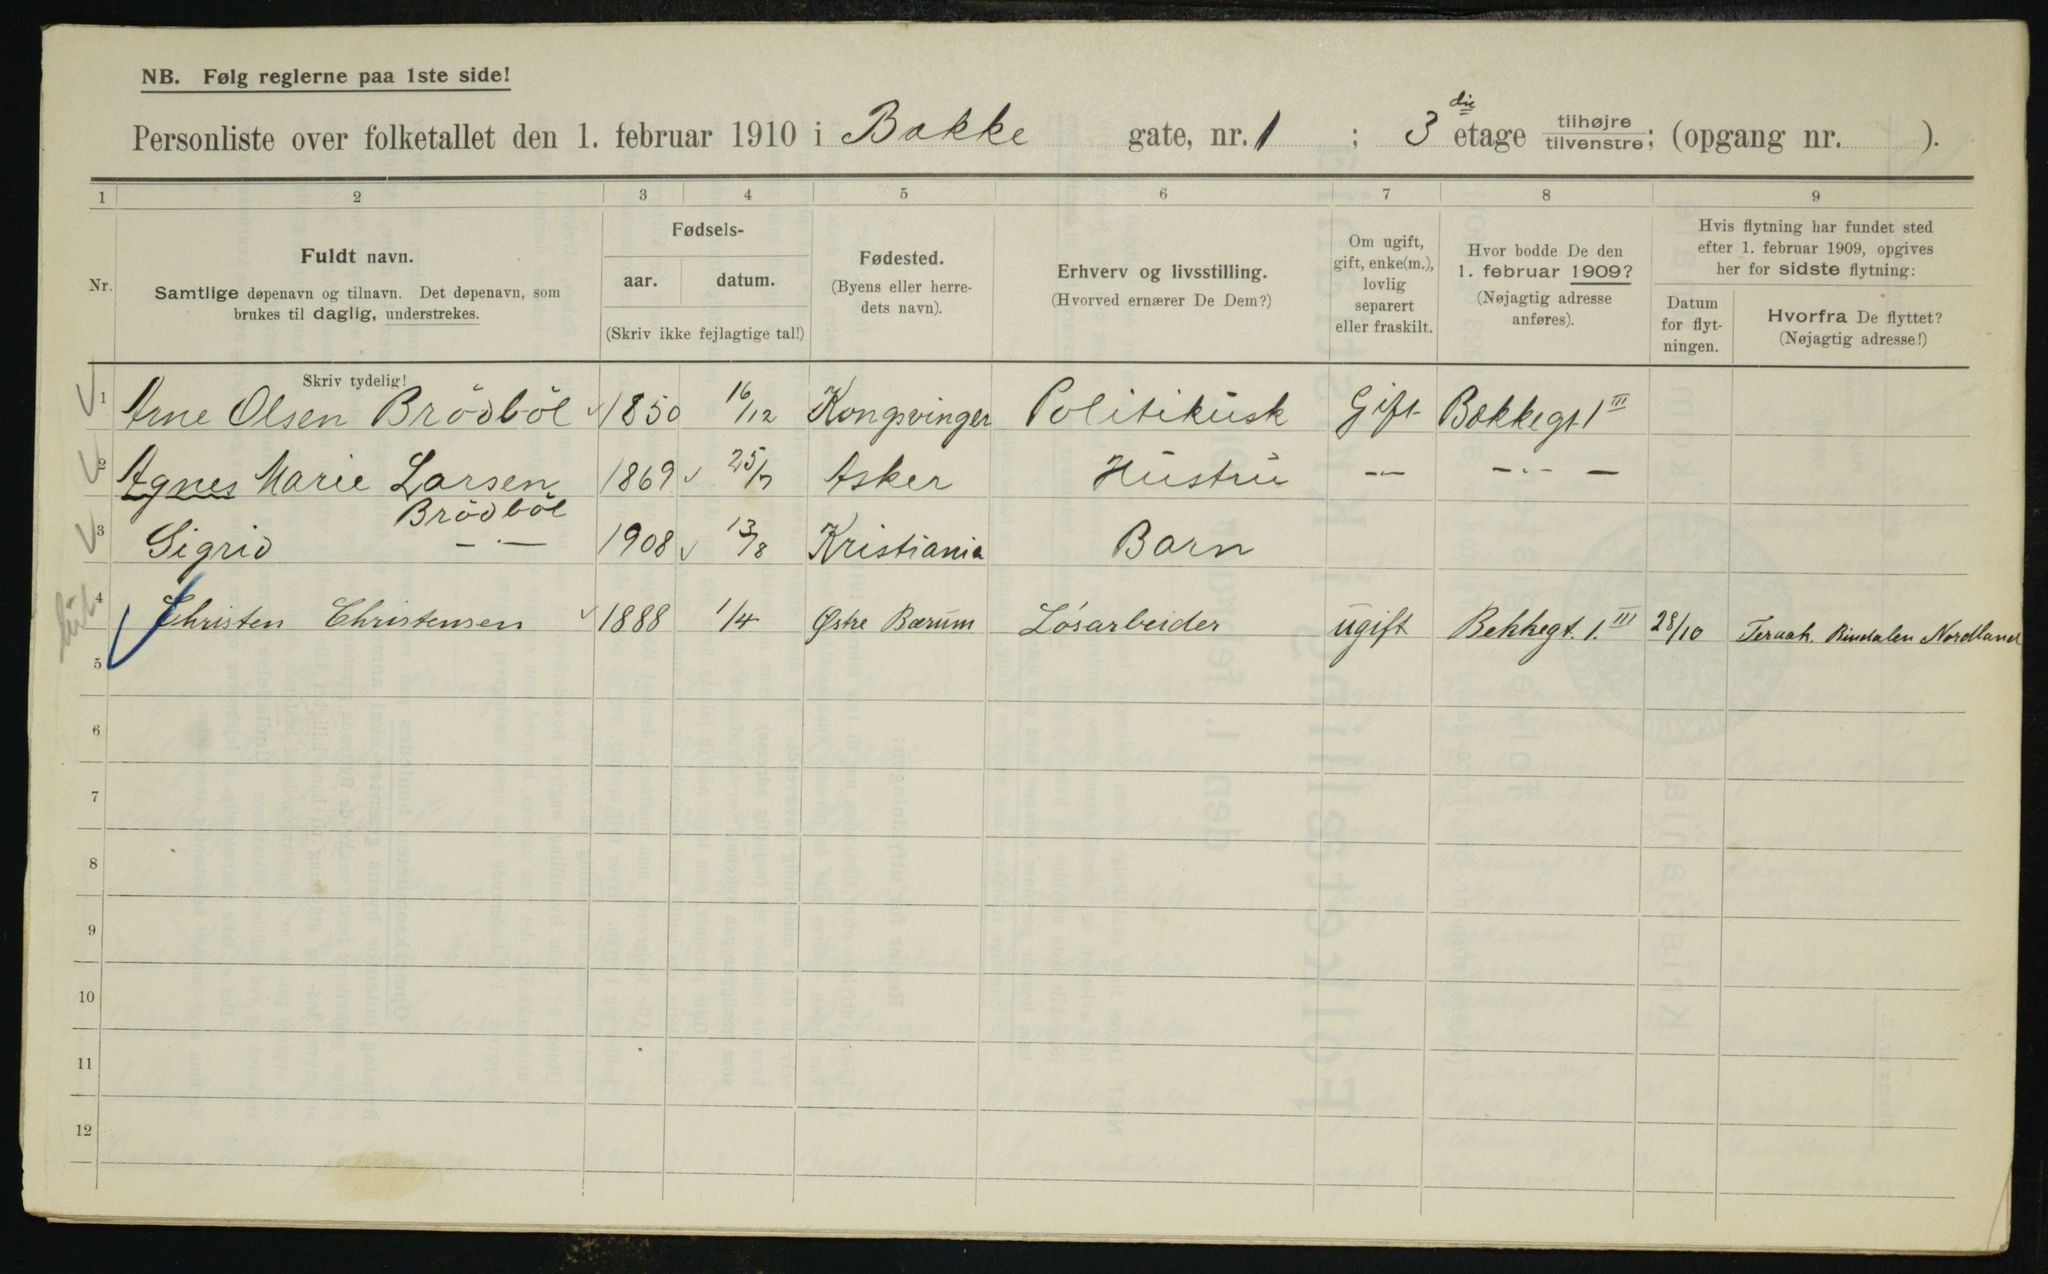 NB. Følg reglerne paa 1ste side!
Personliste over folketallet den 1. februar 1910 i Bakke gate, nr. 1 ; 3 die etage tilhøjre tilvenstre; (opgang nr. ).
1 2 3 4 5 6 7 8 9
Nr.
Fuldt navn.
Samtlige døpenavn og tilnavn. Det døpenavn, som
brukes til daglig, understrekes.
Fødsels-
aar. datum.
(Skriv ikke fejlagtige tal!)
Fødested.
(Byens eller herre-
dets navn).
Erhverv og livsstilling.
(Hvorved ernærer De Dem?)
Om ugift,
gift, enke(m.),
lovlig
separert
eller fraskilt.
Hvor bodde De den
1. februar 1909?
(Nøjagtig adresse
anføres).
Hvis flytning har fundet sted
efter 1. februar 1909, opgives
her for sidste flytning:
Datum
for flyt-
ningen.
Hvorfra De flyttet?
(Nøjagtig adresse!)
Skriv tydelig!
1 Arne Olsen Brödböl 1850 16/12 Kongsvinger Politikusk Gift Bakkegt. 1 III
2 Agnes Marie Larsen Brödböl 1869 25/7 Asker Hustru — " — — " —
3 Sigrid — " — 1908 13/8 Kristiania Barn
4 Christen Christensen 1888 1/4 Østre Bærum Løsarbeider ugift Bekkegt. 1. III 28/10 Rindalen Nordland
5
6
7
8
9
10
11
12